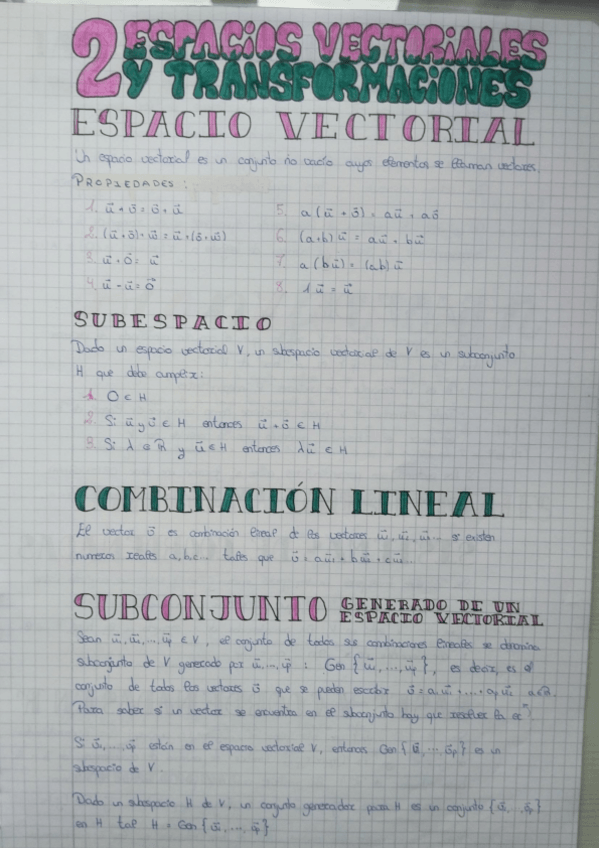 2 ESPACIOS VECTORIALES
Y TRANSFORMACIONES
ESPACIO VECTORIAL
Un espacio vectorial es un conjunto no vacío cuyos elementos se llaman vectores.
PROPIEDADES:
1. u⃗ + v⃗ = v⃗ + u⃗
2. (u⃗ + v⃗) + w⃗ = u⃗ + (v⃗ + w⃗)
3. u⃗ + 0⃗ = u⃗
4. u⃗ - u⃗ = 0⃗
5. a (u⃗ + v⃗) = au⃗ + av⃗
6. (a+b) u⃗ = au⃗ + bu⃗
7. a (bu⃗) = (ab) u⃗
8. 1 u⃗ = u⃗
SUBESPACIO
Dado un espacio vectorial V, un subespacio vectorial de V es un subconjunto
H que debe cumplir:
1. 0 ∈ H
2. Si u⃗ y v⃗ ∈ H entonces u⃗ + v⃗ ∈ H
3. Si λ ∈ ℝ y u⃗ ∈ H entonces λu⃗ ∈ H
COMBINACIÓN LINEAL
El vector v⃗ es combinación lineal de los vectores si existen
numeros reales a, b, c... tales que
SUBCONJUNTO GENERADO DE UN
ESPACIO VECTORIAL
Sean ∈ V, el conjunto de todas sus combinaciones lineales se denomina
subconjunto de V generado por : Gen { }, es decir, es el
conjunto de todos los vectores v⃗ que se pueden escribir
Para saber si un vector se encuentra en el subconjunto hay que resolver la ecⁿ
Si están en el espacio vectorial V, entonces Gen { } es un
subespacio de V.
Dado un subespacio H de V, un conjunto generador para H es un conjunto { }
en H tal H = Gen { }